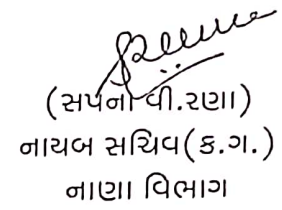 (સપના વી.રણા)
નાયબ સચિવ(ક.ગ.)
નાણા વિભાગ